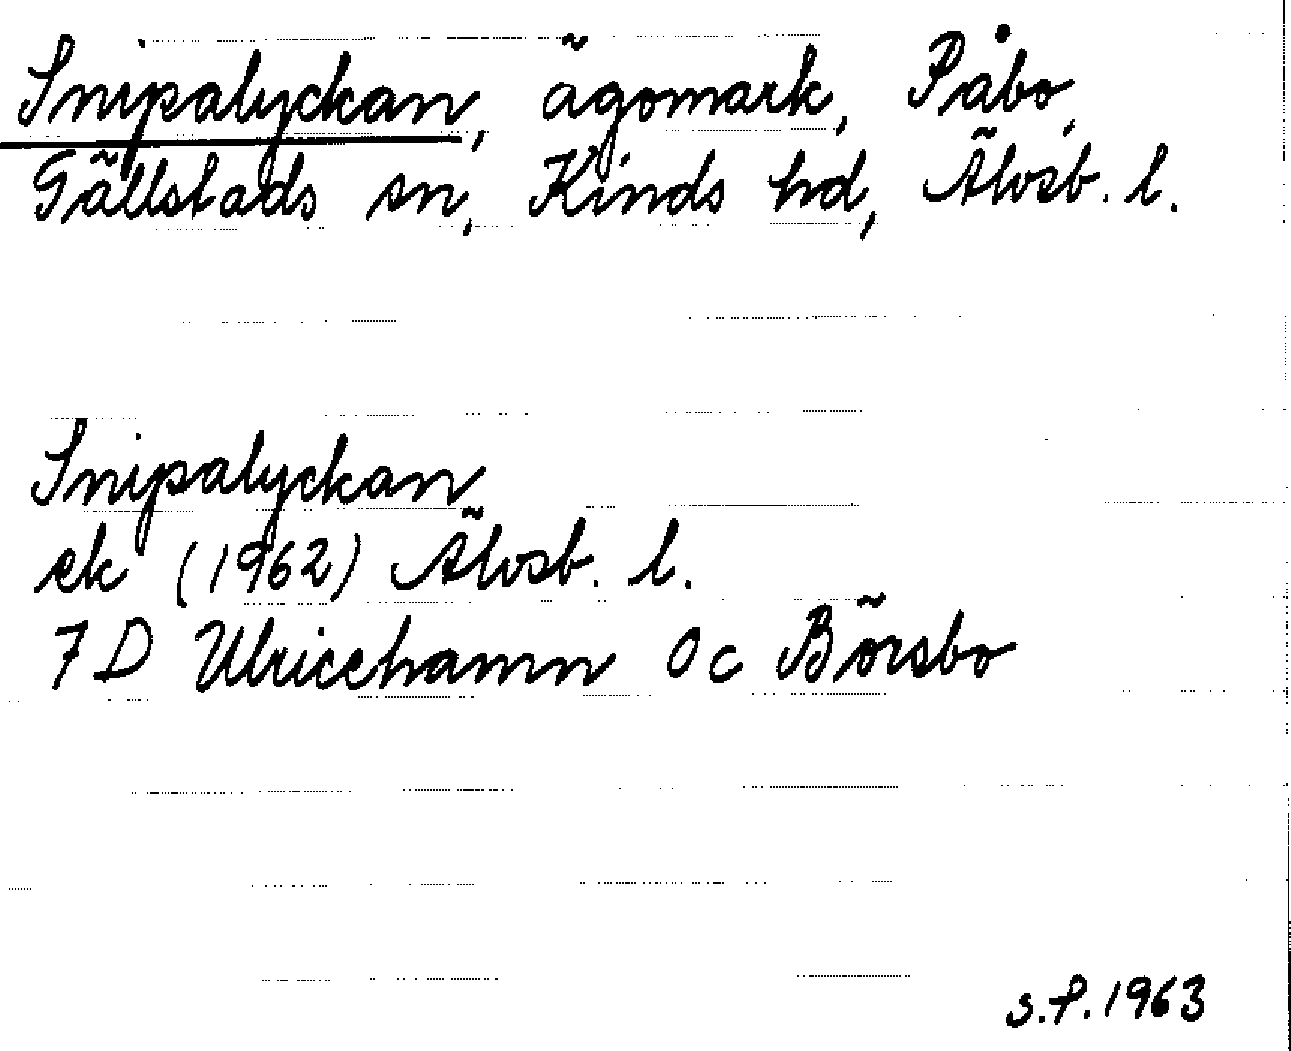 Snipalyckan, ägomark, Påbo,
Gällstads sn, Kinds hd, Älvsb. l.
Snipalyckan
ek (1962) Älvsb. l.
7 D Ulricehamn 0 c Börsbo
S.P. 1963